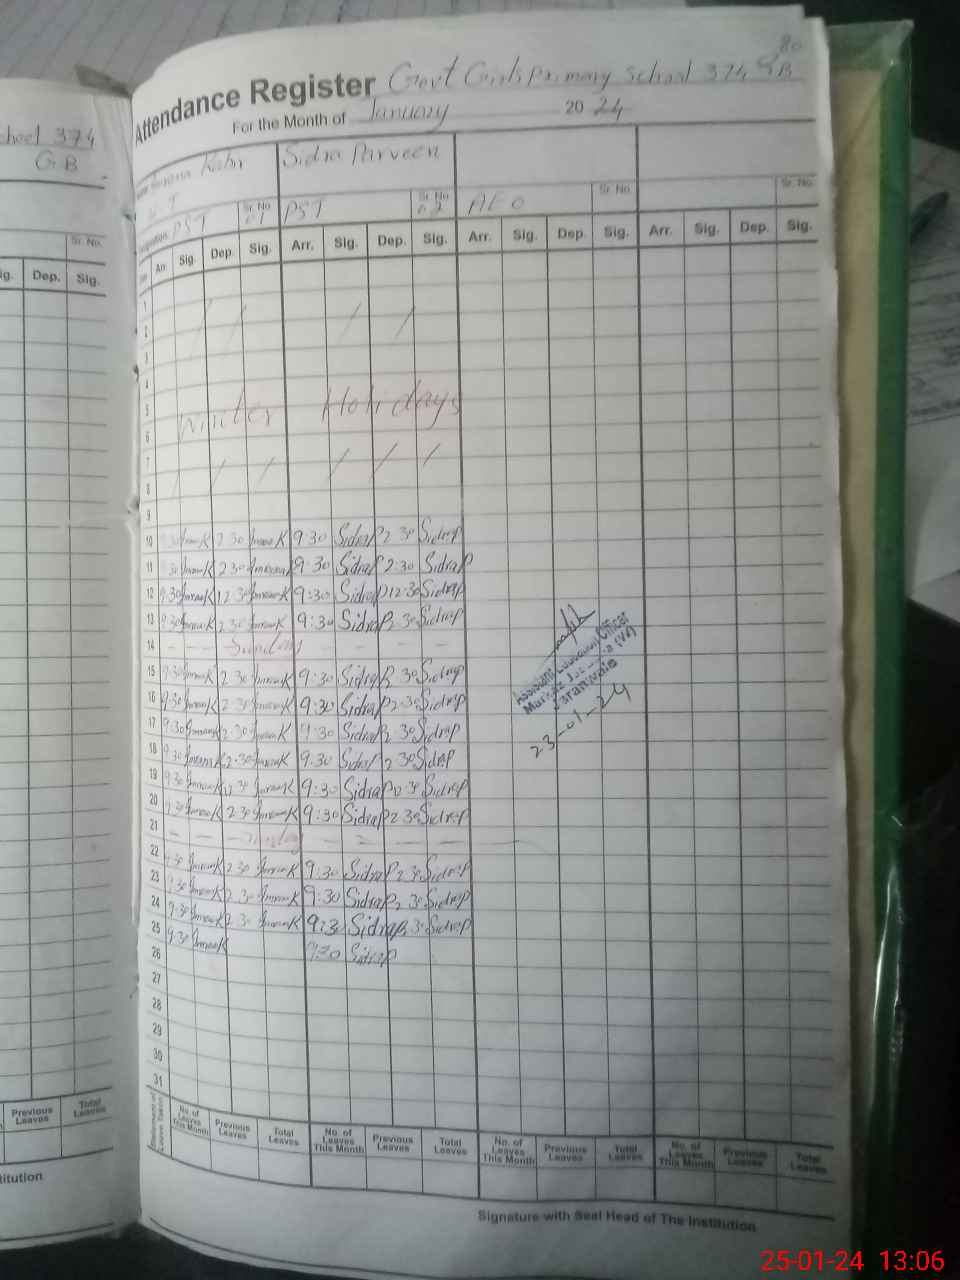 80
Attendance Register Govt Girls Primary School 374 GB
For the Month of January 20 24
Kabir Sidra Parveen
PST Sr. No. 01 PST Sr. No. 02 AEO Sr. No. Sr. No.
Arr. Sig. Dep. Sig. Arr. Sig. Dep. Sig. Arr. Sig. Dep. Sig. Arr. Sig. Dep. Sig.
1
2
3
4
5 Winter Holidays
6
7
8
9
10 9:30 ImranaK 2:30 ImranaK 9:30 SidraP 2:30 SidraP
11 9:30 ImranaK 2:30 Imrana 9:30 SidraP 2:30 SidraP
12 9:30 ImranaK 12:30 ImranaK 9:30 SidraP 12:30 SidraP
13 9:30 ImranaK 2:30 ImranaK 9:30 SidraP 2:30 SidraP
14 - - Sunday - - - -
15 9:30 ImranaK 2:30 ImranaK 9:30 SidraP 2:30 SidraP
16 9:30 ImranaK 2:30 ImranaK 9:30 SidraP 2:30 SidraP
17 9:30 ImranaK 2:30 ImranaK 9:30 SidraP 2:30 SidraP
18 9:30 ImranaK 2:30 ImranaK 9:30 SidraP 2:30 SidraP
19 9:30 ImranaK 12:30 ImranaK 9:30 SidraP 12:30 SidraP
20 9:30 ImranaK 2:30 ImranaK 9:30 SidraP 2:30 SidraP
21 - - Sunday - - - -
22 9:30 ImranaK 2:30 ImranaK 9:30 SidraP 2:30 SidraP
23 9:30 ImranaK 2:30 ImranaK 9:30 SidraP 2:30 SidraP
24 9:30 ImranaK 2:30 ImranaK 9:30 SidraP 2:30 SidraP
25 9:30 ImranaK 9:30 SidraP
26
27
28
29
30
31
Assistant Education Officer
Jaranwala
23-01-24
No. of Leaves This Month Previous Leaves Total Leaves No. of Leaves This Month Previous Leaves Total Leaves No. of Leaves This Month Previous Leaves Total Leaves No. of Leaves This Month Previous Leaves Total Leaves
Signature with Seal Head of The Institution
chool 374
GB
Sr. No.
ig. Dep. Sig.
Previous Leaves Total Leaves
titution
25-01-24 13:06